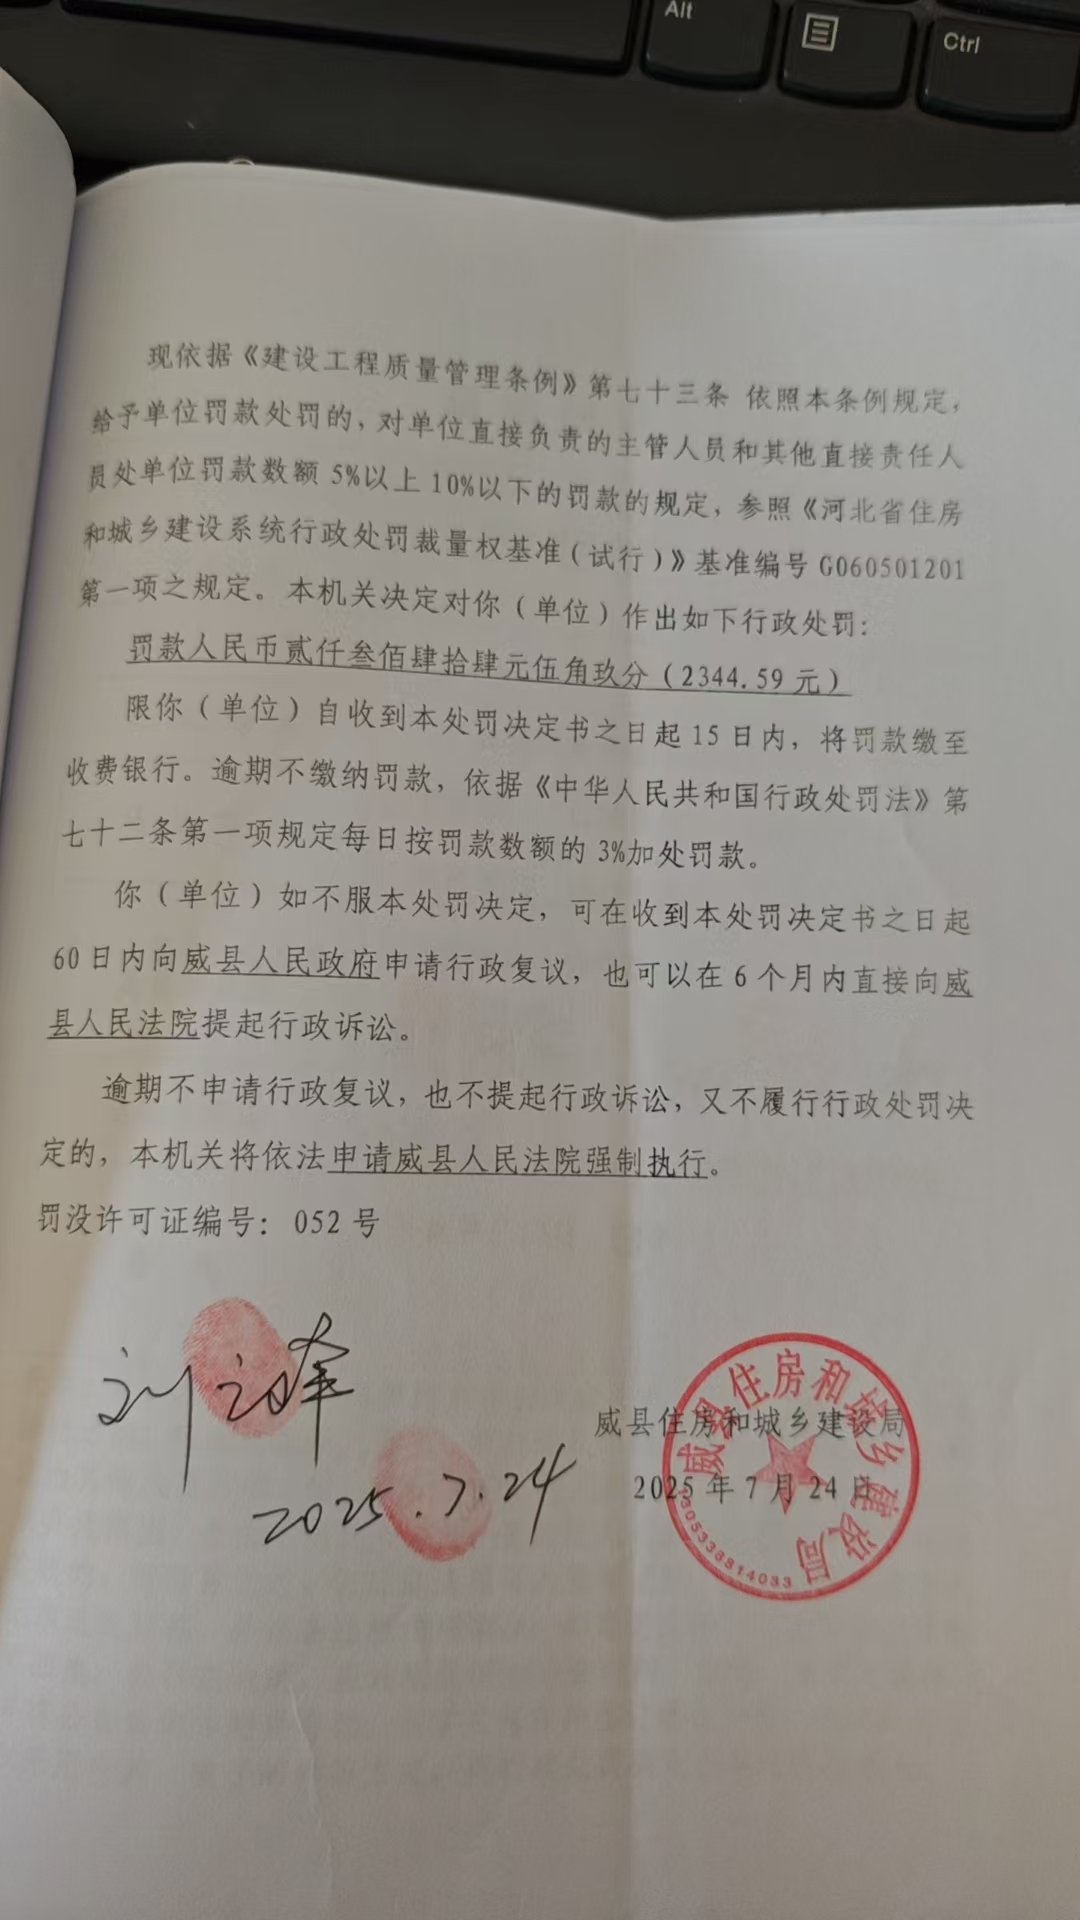 Alt
Ctrl
现依据《建设工程质量管理条例》第七十三条 依照本条例规定，
给予单位罚款处罚的，对单位直接负责的主管人员和其他直接责任人
员处单位罚款数额 5%以上 10%以下的罚款的规定，参照《河北省住房
和城乡建设系统行政处罚裁量权基准（试行）》基准编号 G060501201
第一项之规定。本机关决定对你（单位）作出如下行政处罚：
罚款人民币贰仟叁佰肆拾肆元伍角玖分（2344.59 元）
限你（单位）自收到本处罚决定书之日起 15 日内，将罚款缴至
收费银行。逾期不缴纳罚款，依据《中华人民共和国行政处罚法》第
七十二条第一项规定每日按罚款数额的 3%加处罚款。
你（单位）如不服本处罚决定，可在收到本处罚决定书之日起
60 日内向威县人民政府申请行政复议，也可以在 6 个月内直接向威
县人民法院提起行政诉讼。
逾期不申请行政复议，也不提起行政诉讼，又不履行行政处罚决
定的，本机关将依法申请威县人民法院强制执行。
罚没许可证编号： 052 号
刘
2025.7.24
威县住房和城乡建设局
2025 年 7 月 24 日
威县住房和城乡建设局
1305338814033